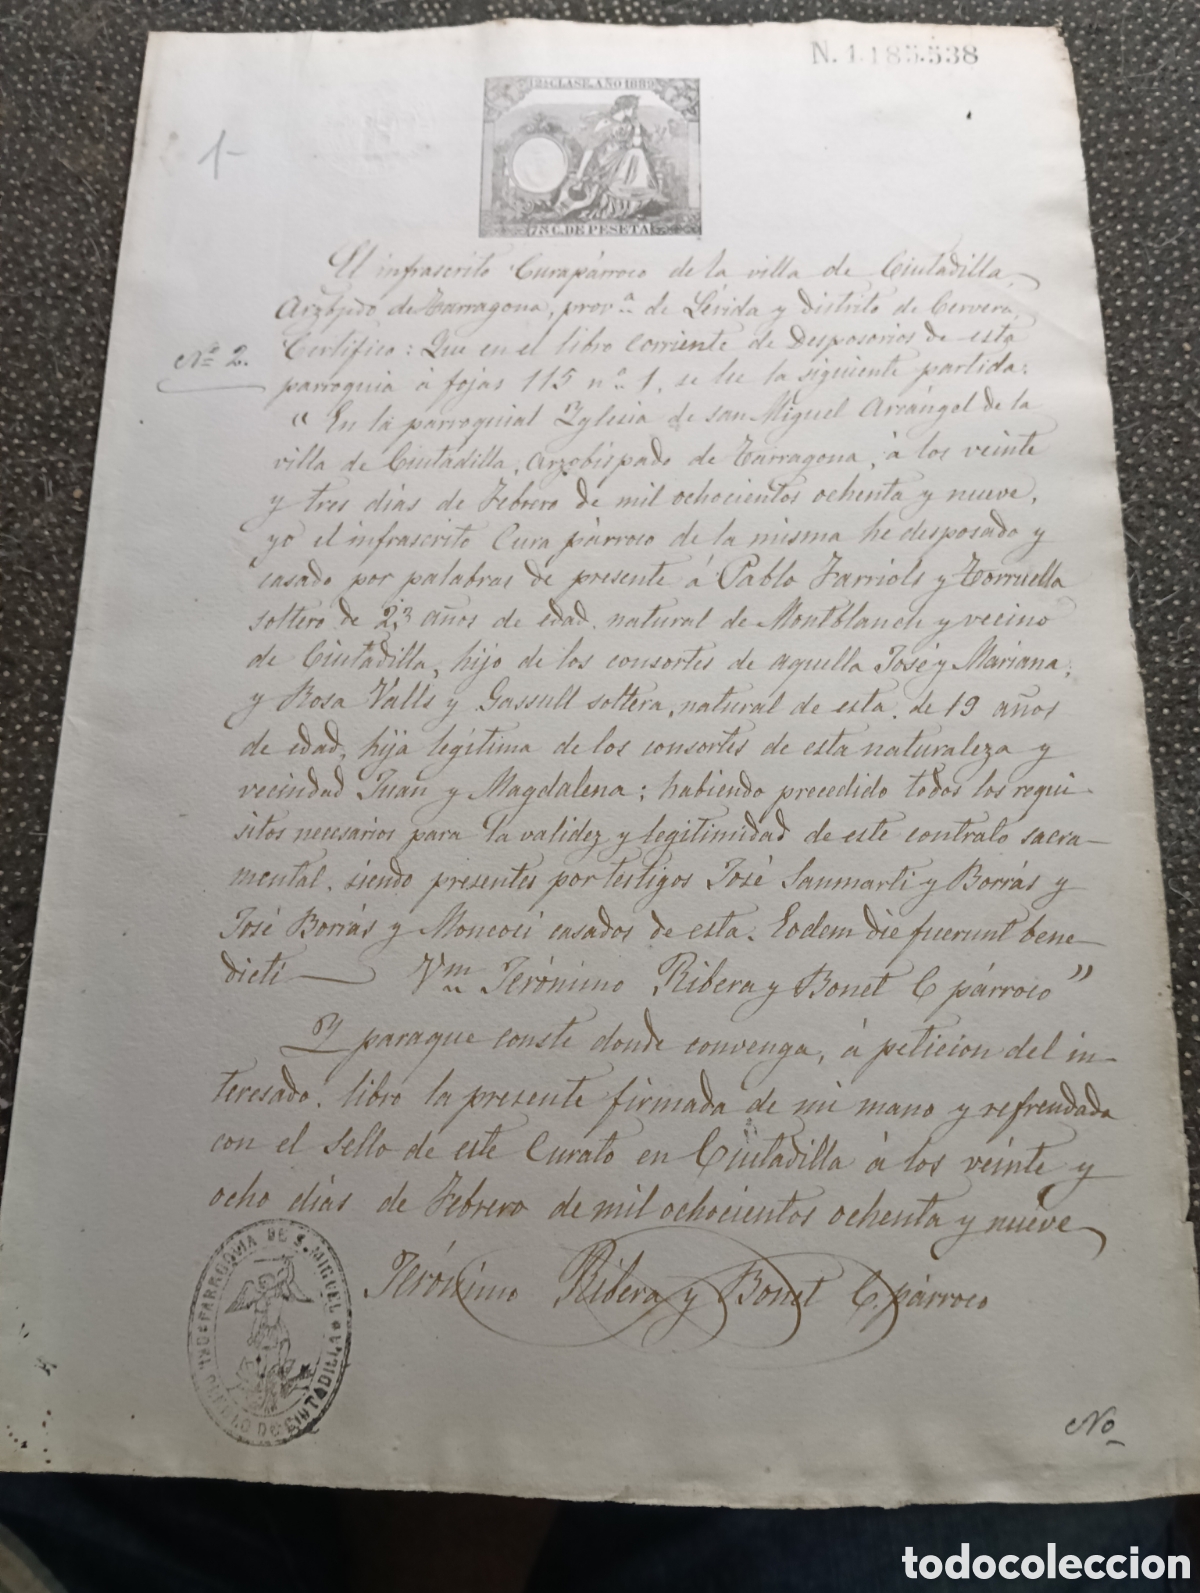 N. 1.185.538
12ª CLASE. AÑO 1889
1
75 C. DE PESETA
El infrascrito Curapárroco de la villa de Ciutadilla,
Arzbpdo de Tarragona, provª de Lérida y distrito de Cervera,
Nº 2.
Certifico: Que en el libro corriente de Desposorios de esta
parroquia á fojas 115 nº 1, se lee la siguiente partida:
"En la parroquial Yglesia de san Miguel Arcángel de la
villa de Ciutadilla, Arzobispado de Tarragona, á los veinte
y tres días de Febrero de mil ochocientos ochenta y nueve,
yo el infrascrito Cura párroco de la misma he desposado y
casado por palabras de presente á Pablo Farriols y Torruella
soltero de 23 años de edad, natural de Montblanch y vecino
de Ciutadilla, hijo de los consortes de aquella José y Mariana;
y Rosa Valls y Gassull soltera, natural de esta, de 19 años
de edad, hija legítima de los consortes de esta naturaleza y
vecindad Juan y Magdalena; habiendo precedido todos los requi-
sitos necesarios para la validez y legitimidad de este contrato sacra-
mental, siendo presentes por testigos José Sanmartí y Borrás y
José Borrás y Moncosí casados de esta. Eodem die fuerunt bene-
dicti — Jerónimo Ribera y Bonet C párroco"
Y paraque conste donde convenga, á peticion del in-
teresado, libro la presente firmada de mi mano y refrendada
con el sello de este Curato en Ciutadilla á los veinte y
ocho días de Febrero de mil ochocientos ochenta y nueve
Jerónimo Ribera y Bonet C. párroco
PARROQUIA DE S. MIGUEL DEL PUEBLO DE CIUTADILLA
No
todocoleccion